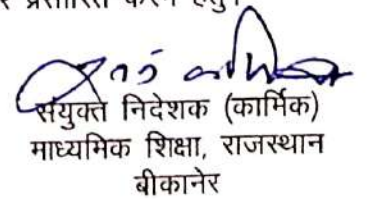 प्रसारित करने हेतु।
संयुक्त निदेशक (कार्मिक)
माध्यमिक शिक्षा, राजस्थान
बीकानेर